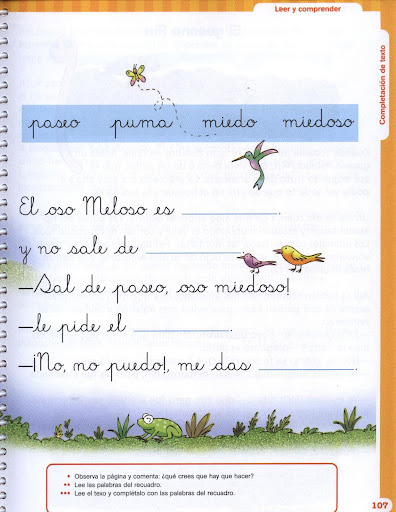 Leer y comprender
Completación de texto
paseo puma miedo miedoso
El oso Meloso es ________.
y no sale de ________
—Sal de paseo, oso miedoso!
—le pide el ________.
—¡No, no puedo!, me das ________.
• Observa la página y comenta: ¿qué crees que hay que hacer?
•• Lee las palabras del recuadro.
••• Lee el texo y complétalo con las palabras del recuadro.
107